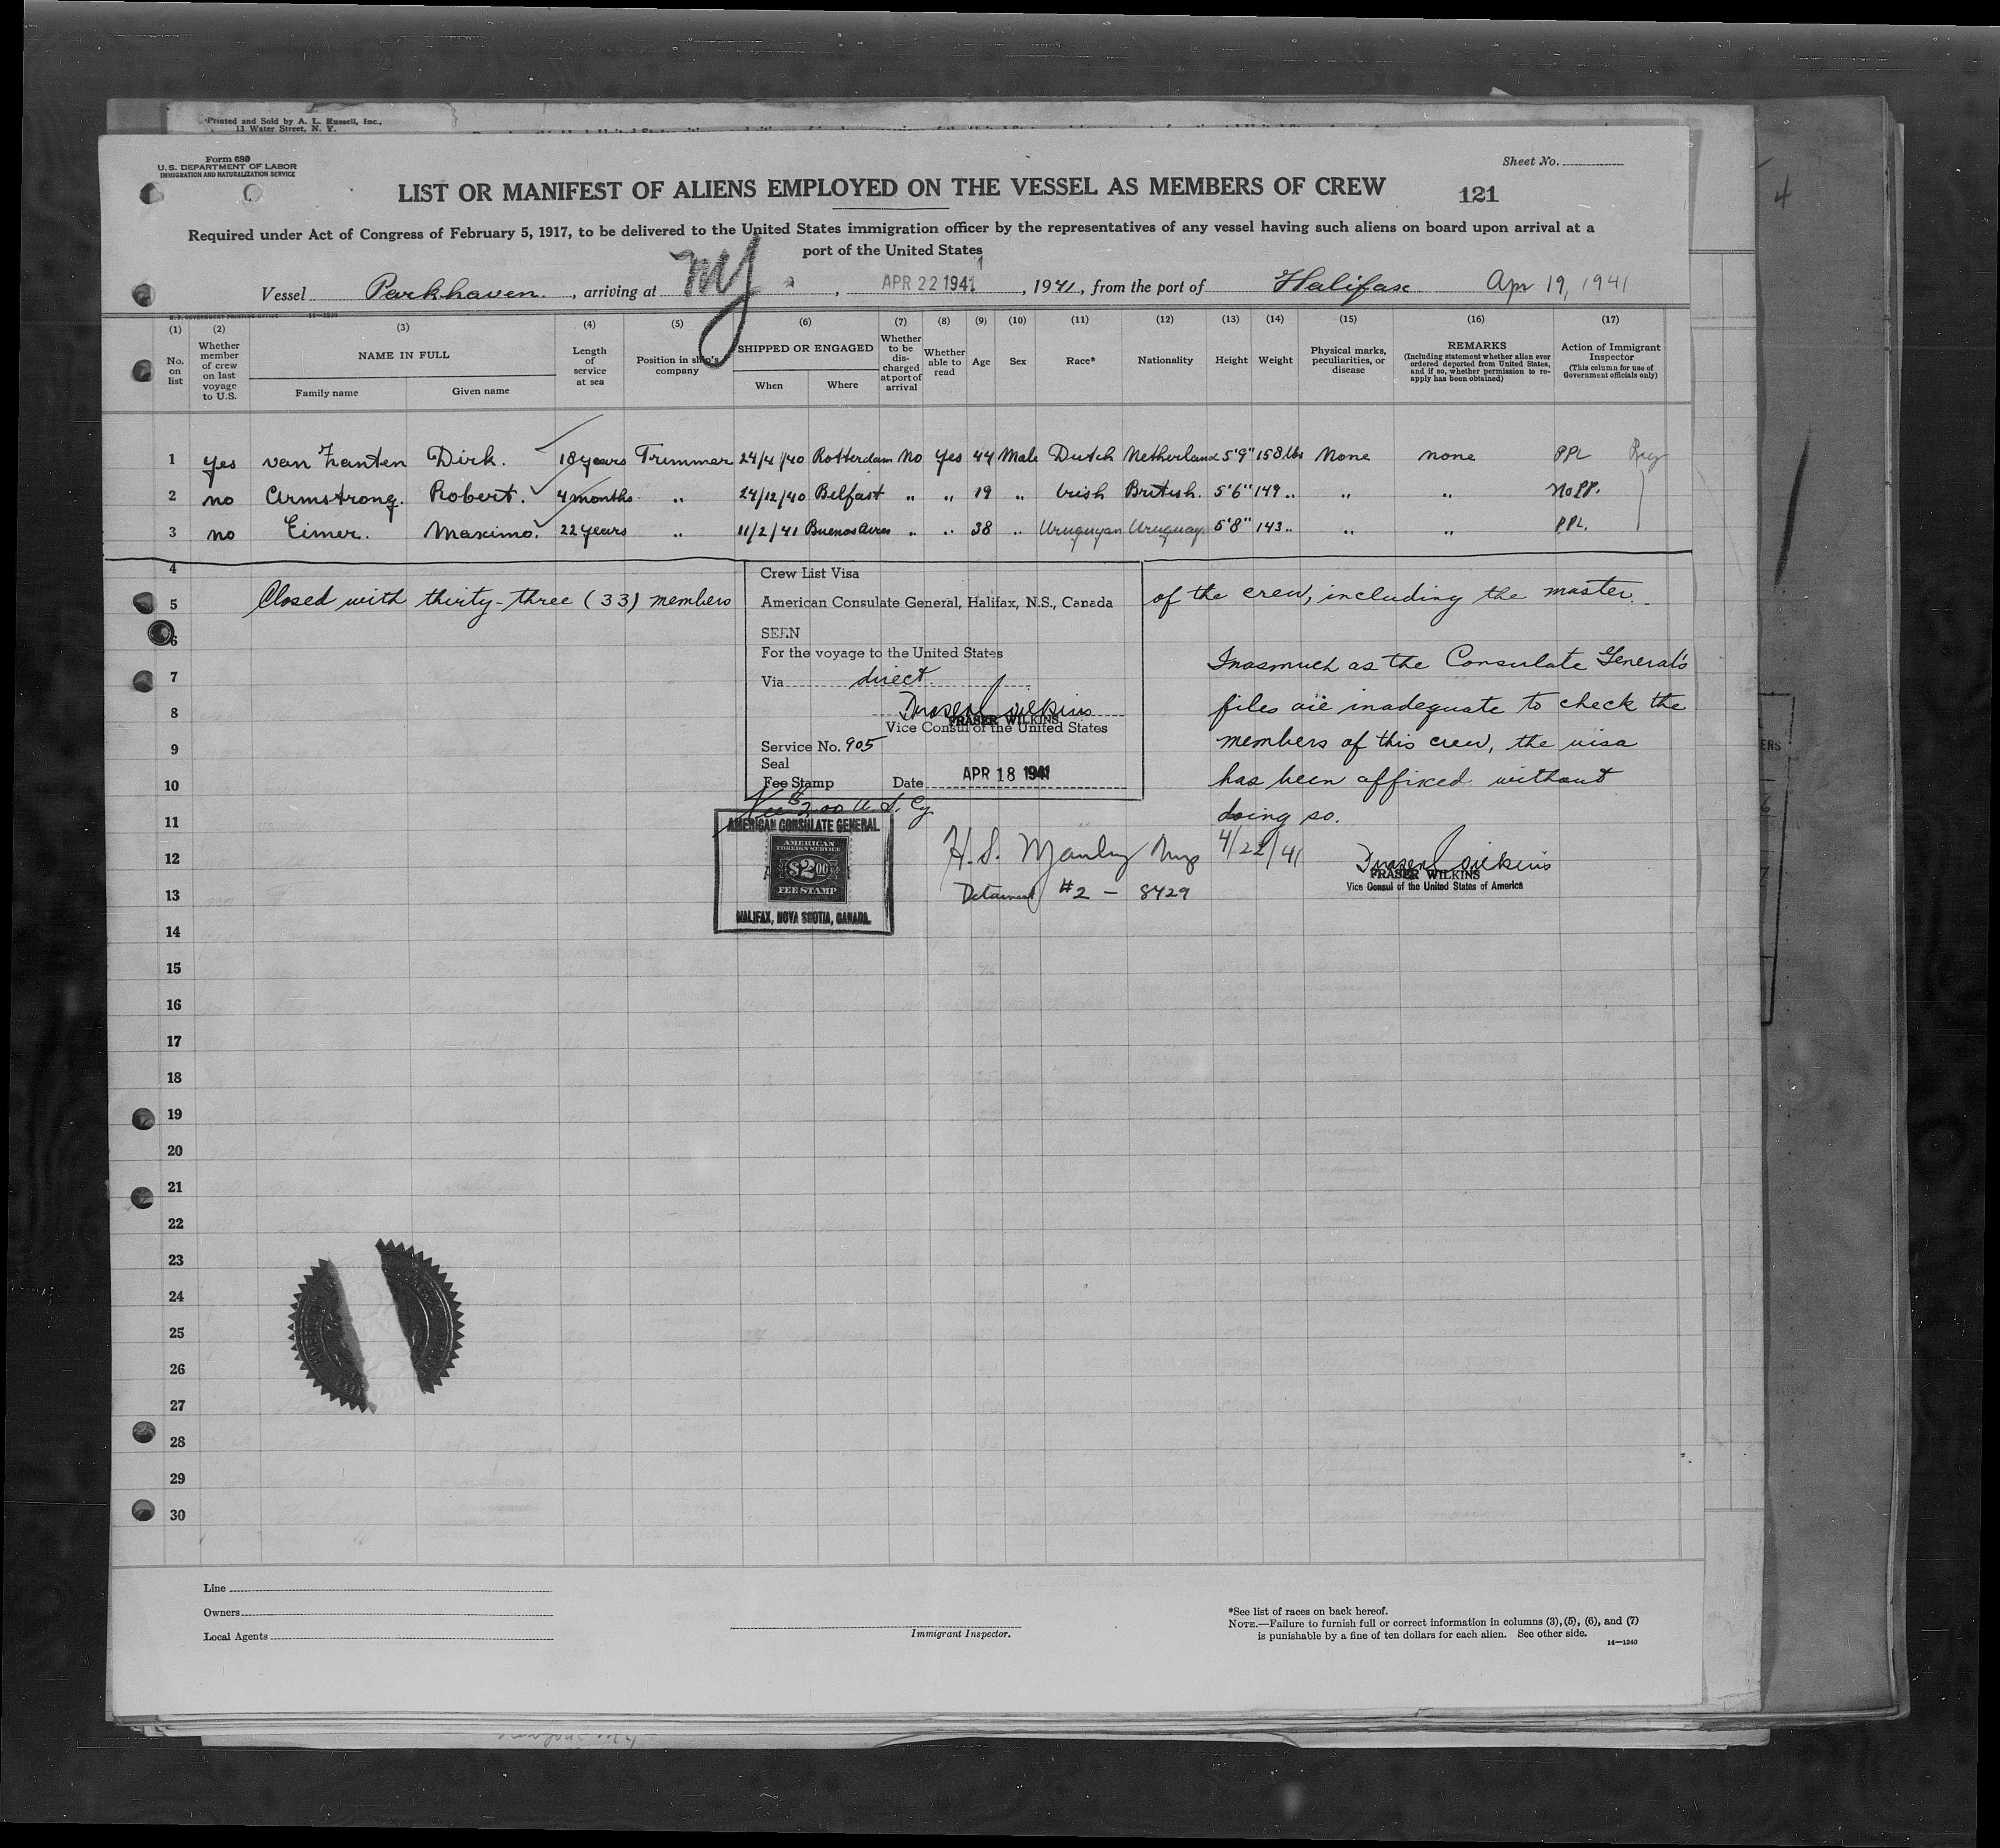 Printed and Sold by A. L. Russell, Inc.,
13 Water Street, N. Y.
Form 680
U.S. DEPARTMENT OF LABOR
IMMIGRATION AND NATURALIZATION SERVICE
Sheet No.
LIST OR MANIFEST OF ALIENS EMPLOYED ON THE VESSEL AS MEMBERS OF CREW
121
Required under Act of Congress of February 5, 1917, to be delivered to the United States immigration officer by the representatives of any vessel having such aliens on board upon arrival at a
port of the United States
Vessel Parkhaven, arriving at NY, APR 22 1941, 1941, from the port of Halifax Apr 19, 1941
U.S. GOVERNMENT PRINTING OFFICE 14—1240
(1) (2) (3) (4) (5) (6) (7) (8) (9) (10) (11) (12) (13) (14) (15) (16) (17)
No. on list
Whether member of crew on last voyage to U.S.
NAME IN FULL
Family name
Given name
Length of service at sea
Position in ship's company
SHIPPED OR ENGAGED
When
Where
Whether to be discharged at port of arrival
Whether able to read
Age
Sex
Race*
Nationality
Height
Weight
Physical marks, peculiarities, or disease
REMARKS
(Including statement whether alien ever ordered deported from United States, and if so, whether permission to reapply has been obtained)
Action of Immigrant Inspector
(This column for use of Government officials only)
1 yes van Zanten Dirk. 18 years Trimmer 24/4/40 Rotterdam No yes 44 Male Dutch Netherland 5'9" 158 lbs None none PPL
2 no Armstrong. Robert. 4 months " 24/12/40 Belfast " " 19 " Irish British. 5'6" 149 " " " No PP.
3 no Eimer. Maximo. 22 years " 11/2/41 Buenos Aires " " 38 " Uruguyan Uruguay. 5'8" 143 " " " PPL.
4
5 Closed with thirty-three (33) members of the crew, including the master.
Crew List Visa
American Consulate General, Halifax, N.S., Canada
SEEN
For the voyage to the United States
Via direct
Fraser Wilkins
FRASER WILKINS
Vice Consul of the United States
Service No. 905
Seal
Fee Stamp Date APR 18 1941
Fee $2.00 U.S. Cy
Inasmuch as the Consulate General's
files are inadequate to check the
members of this crew, the visa
has been affixed without
doing so.
Fraser Wilkins
FRASER WILKINS
Vice Consul of the United States of America
AMERICAN CONSULATE GENERAL
AMERICAN
FOREIGN SERVICE
$2.00
FEE STAMP
HALIFAX, NOVA SCOTIA, CANADA.
H. S. Manley 4/22/41
Detained #2 - 8429
6
7
8
9
10
11
12
13
14
15
16
17
18
19
20
21
22
23
24
25
26
27
28
29
30
Line
Owners
Local Agents
Immigrant Inspector.
*See list of races on back hereof.
NOTE.—Failure to furnish full or correct information in columns (3), (5), (6), and (7)
is punishable by a fine of ten dollars for each alien. See other side.
14—1240